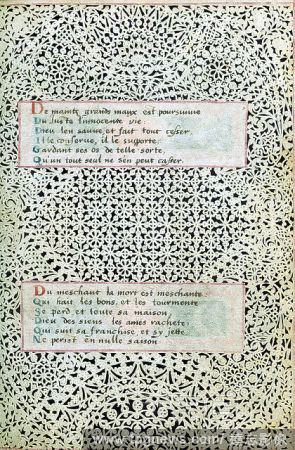 De maintz grands maux est poursuivie
Du Juste Innocente vie:
Dieu len sauve et fait tout cesser.
Il le conserve, il le suporte,
Gardant ses os de telle sorte,
Qu'un tout seul ne sen peut casser.
Du meschant la mort est meschante
Qui hait les bons, et les tourmente
Se perd et toute sa maison,
Dieu des siens les ames rachete:
Qui suit sa franchise, et sy jette
Ne perist en nulle saison
www.tpgnews.com/